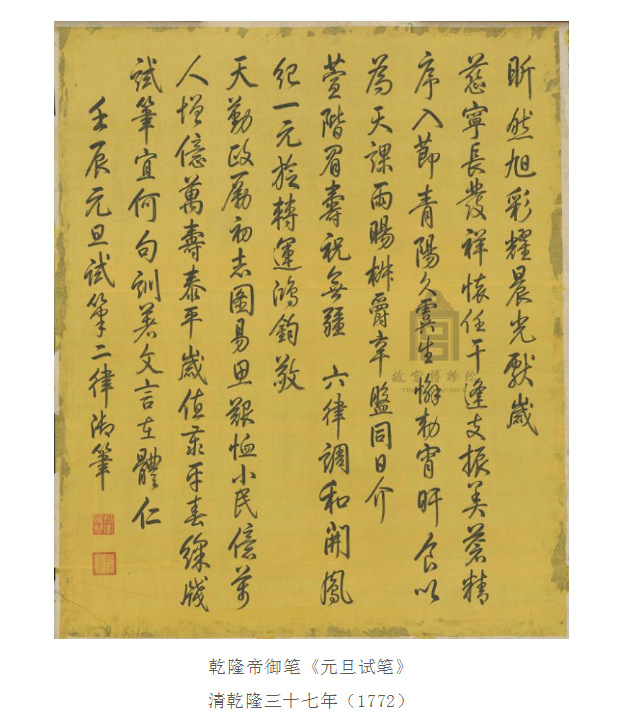 昕然旭彩耀晨光獻歲
慈寧長發祥懷任干逢支振美蒼精
序入節青陽久虞生懈勑宵旰食以
為天課雨暘椒爵辛盤同日介
萱階眉壽祝無疆 六律調和開鳳
紀一元旋轉運鴻鈞敬
天勤政勵初志圖易思艱恤小民億萬
人增億萬壽泰平歲值平春綵牋
試筆宜何句訓著文言在體仁
壬辰元旦試筆二律御筆
故宫博物院
乾隆帝御笔《元旦试笔》
清乾隆三十七年（1772）